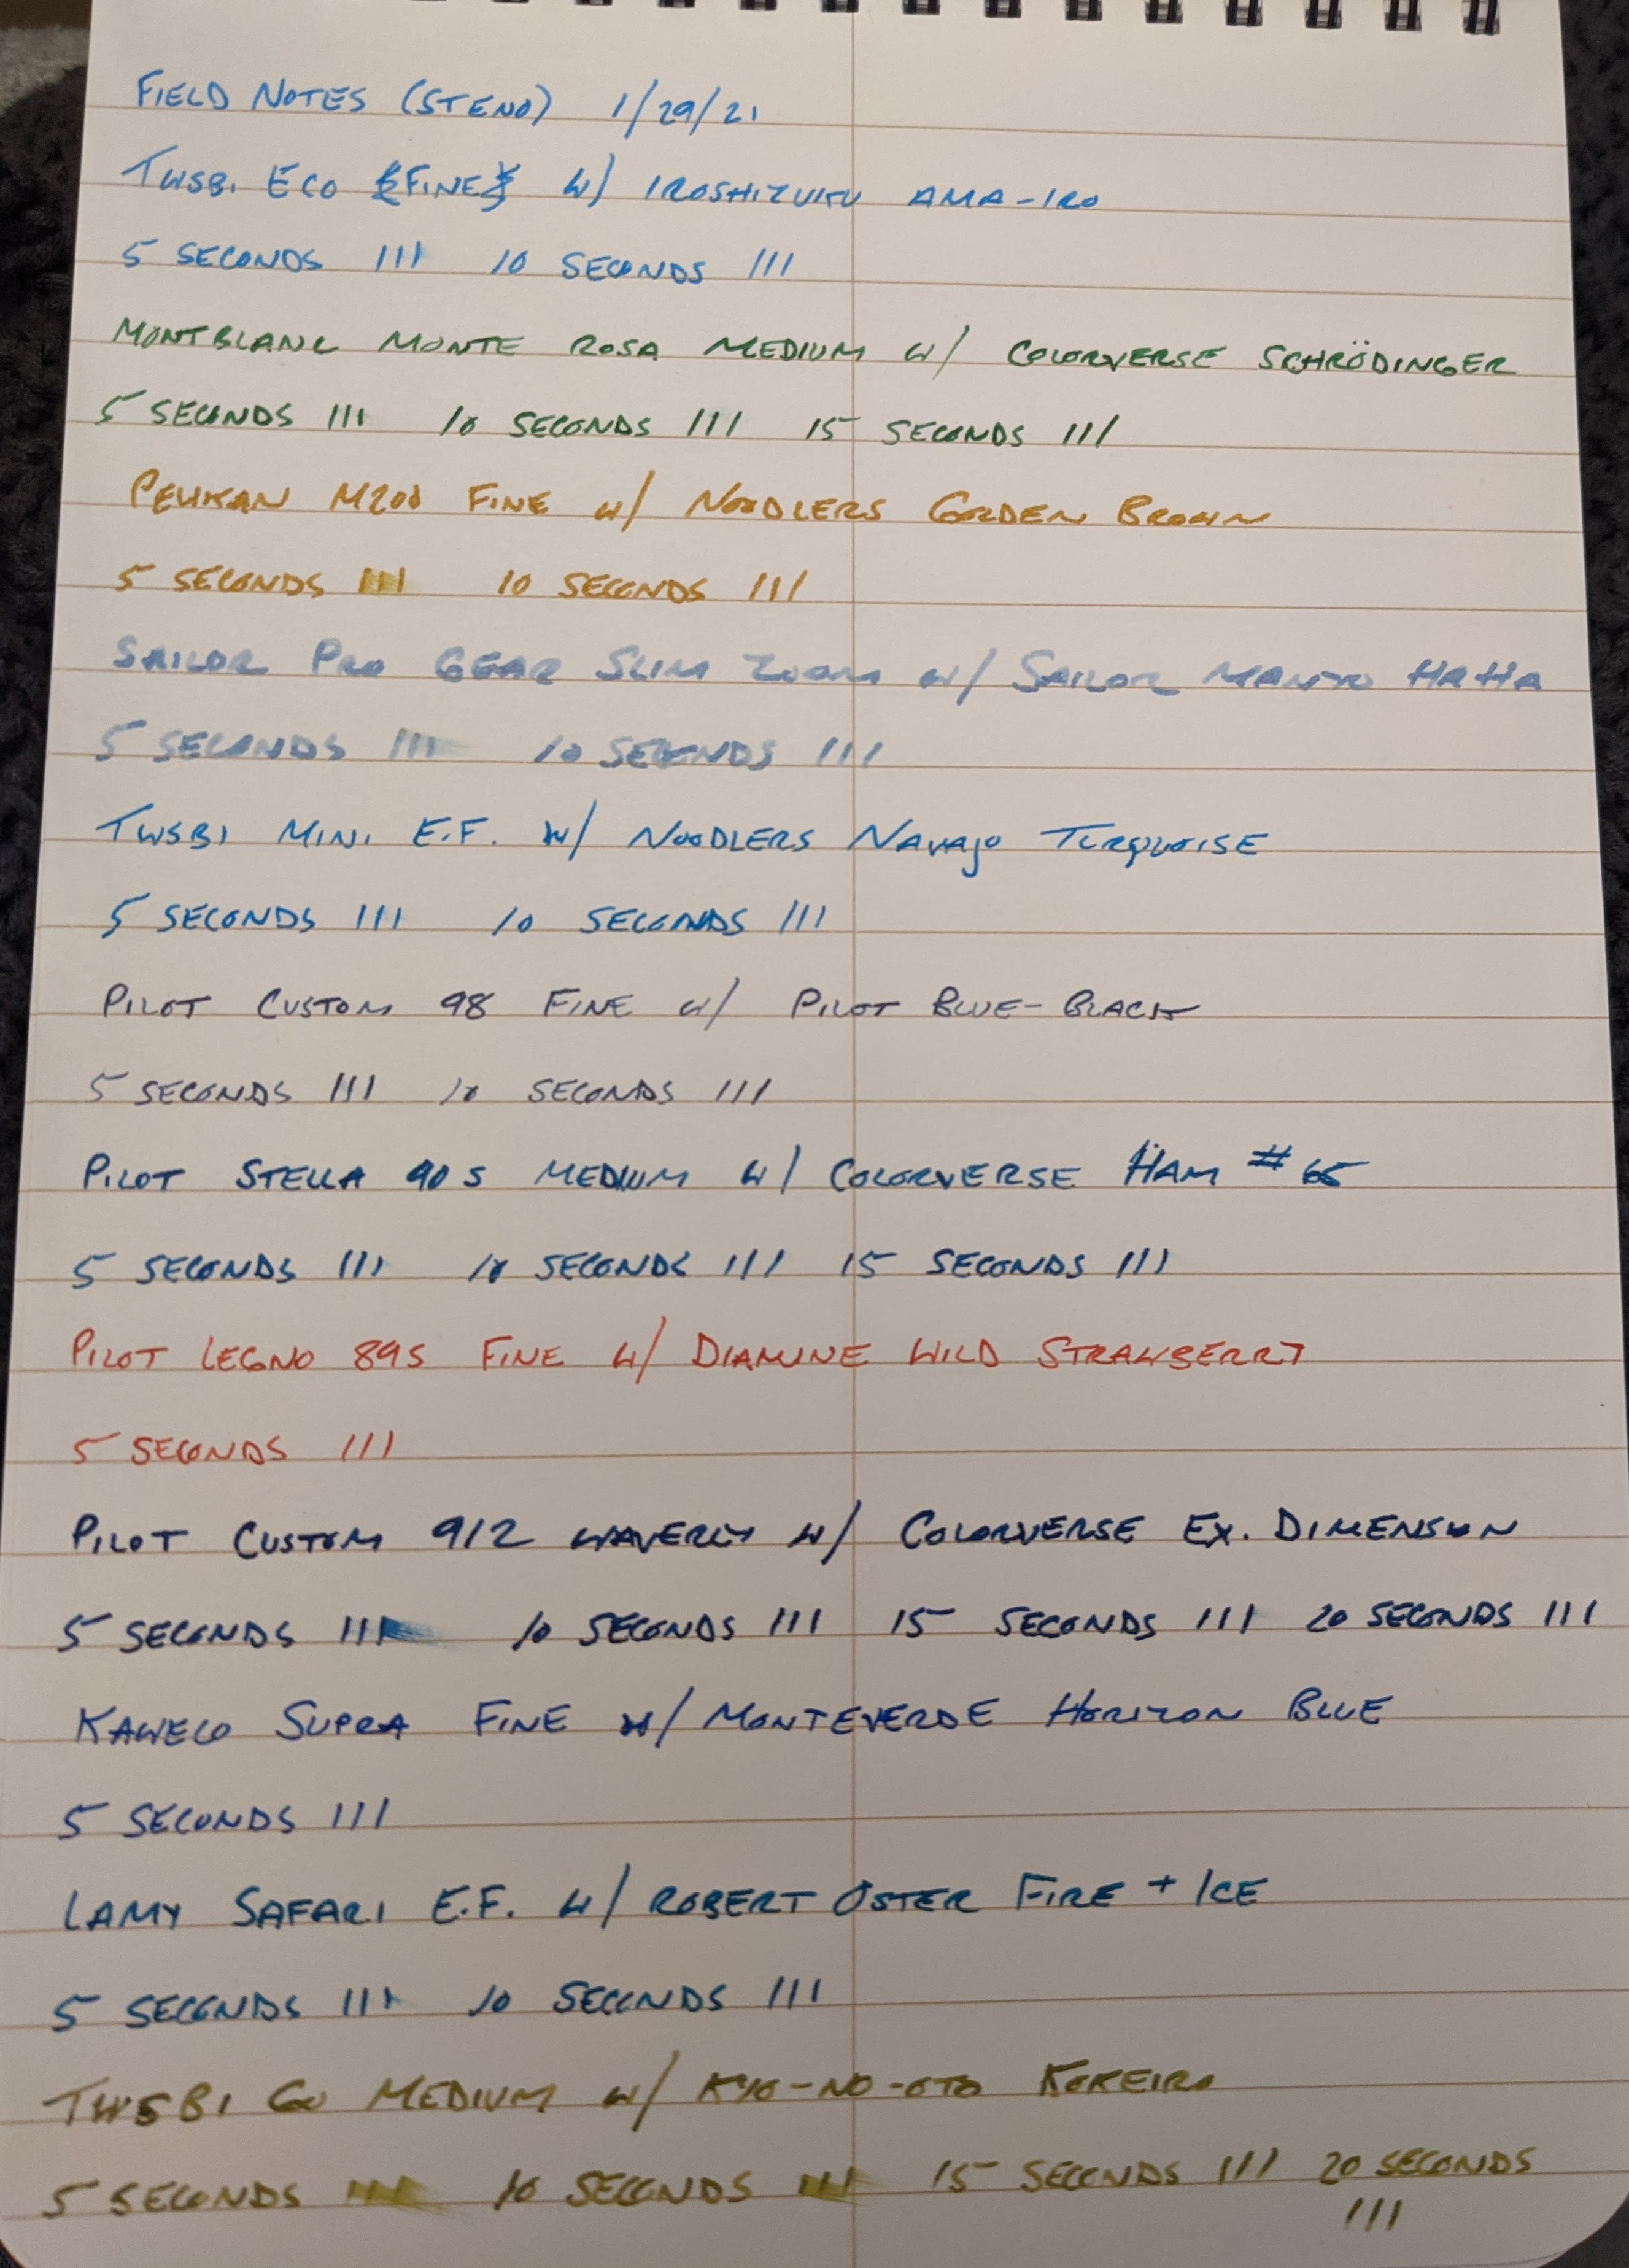 FIELD NOTES (STENO) 1/29/21
TWSBI ECO {FINE} W/ IROSHIZUKU AMA-IRO
5 SECONDS III 10 SECONDS III
MONTBLANC MONTE ROSA MEDIUM W/ COLORVERSE SCHRÖDINGER
5 SECONDS III 10 SECONDS III 15 SECONDS III
PELIKAN M200 FINE W/ NOODLERS GOLDEN BROWN
5 SECONDS III 10 SECONDS III
SAILOR PRO GEAR SLIM ZOOM W/ SAILOR MANYO HAHA
5 SECONDS III 10 SECONDS III
TWSBI MINI E.F. W/ NOODLERS NAVAJO TURQUOISE
5 SECONDS III 10 SECONDS III
PILOT CUSTOM 98 FINE W/ PILOT BLUE-BLACK
5 SECONDS III 10 SECONDS III
PILOT STELLA 90S MEDIUM W/ COLORVERSE HAM #65
5 SECONDS III 10 SECONDS III 15 SECONDS III
PILOT LEGNO 89S FINE W/ DIAMINE WILD STRAWBERRY
5 SECONDS III
PILOT CUSTOM 912 WAVERLY W/ COLORVERSE EX. DIMENSION
5 SECONDS III 10 SECONDS III 15 SECONDS III 20 SECONDS III
KAWECO SUPRA FINE W/ MONTEVERDE HORIZON BLUE
5 SECONDS III
LAMY SAFARI E.F. W/ ROBERT OSTER FIRE + ICE
5 SECONDS III 10 SECONDS III
TWSBI GO MEDIUM W/ KYO-NO-OTO KOKEIRO
5 SECONDS III 10 SECONDS III 15 SECONDS III 20 SECONDS
III